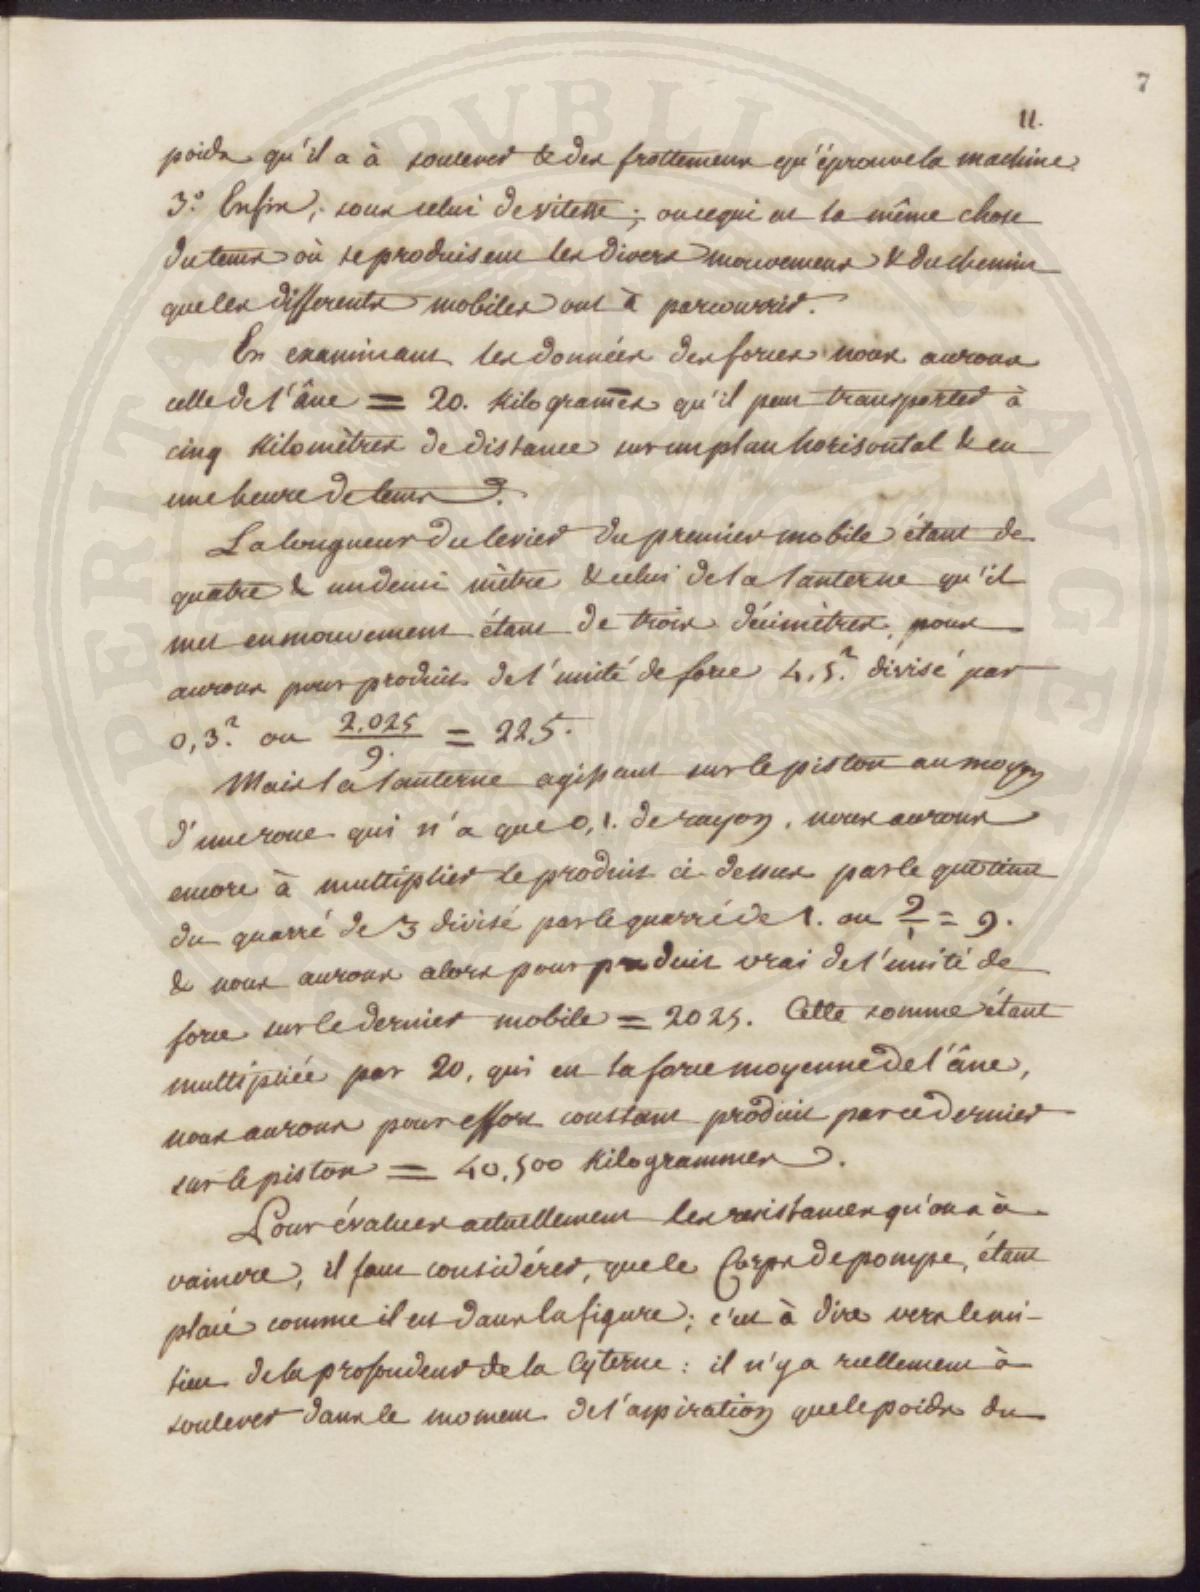 7
11.
poids qu'il a à soulever & des frottemens qu'éprouve la machine.
3.° Enfin, sous celui de vitesse; ou ce qui est la même chose
du tems où se produisent les divers mouvemens & du chemin
que les differents mobiles ont à parcourrir.
En examinant les données des forces nous aurons
celle de l'âne = 20. Kilogrames qu'il peut transporter à
cinq Kilomètres de distance sur un plan horisontal & en
une heure de tems.
La longueur du levier du premier mobile étant de
quatre & un demi mètre & celui de la lanterne qu'il
met en mouvement étant de trois décimètres, nous
aurons pour produit de l'unité de force 4,5.² divisé par
0,3.² ou 2.025/9. = 225.
Mais la lanterne agissant sur le piston au moyen
d'une roue qui n'a que 0,1. de rayon, nous aurons
encore à multiplier le produit ci dessus par le quotient
du quarré de 3 divisé par le quarré de 1. ou 9/1 = 9.
& nous aurons alors pour produit vrai de l'unité de
force sur le dernier mobile = 2025. Cette somme étant
multipliée par 20, qui est la force moyenne de l'âne,
nous aurons pour effort constant produit par ce dernier
sur le piston = 40,500 Kilogrammes.
Pour évaluer actuellement les resistances qu'on a à
vaincre, il faut considérer, que le Corps de pompe, étant
placé comme il est dans la figure; c'est à dire vers le mi-
lieu de la profondeur de la Cyterne: il n'y a réellement à
soulever dans le moment de l'aspiration que le poids du
SPERITAS PVBLICE AVGENDO